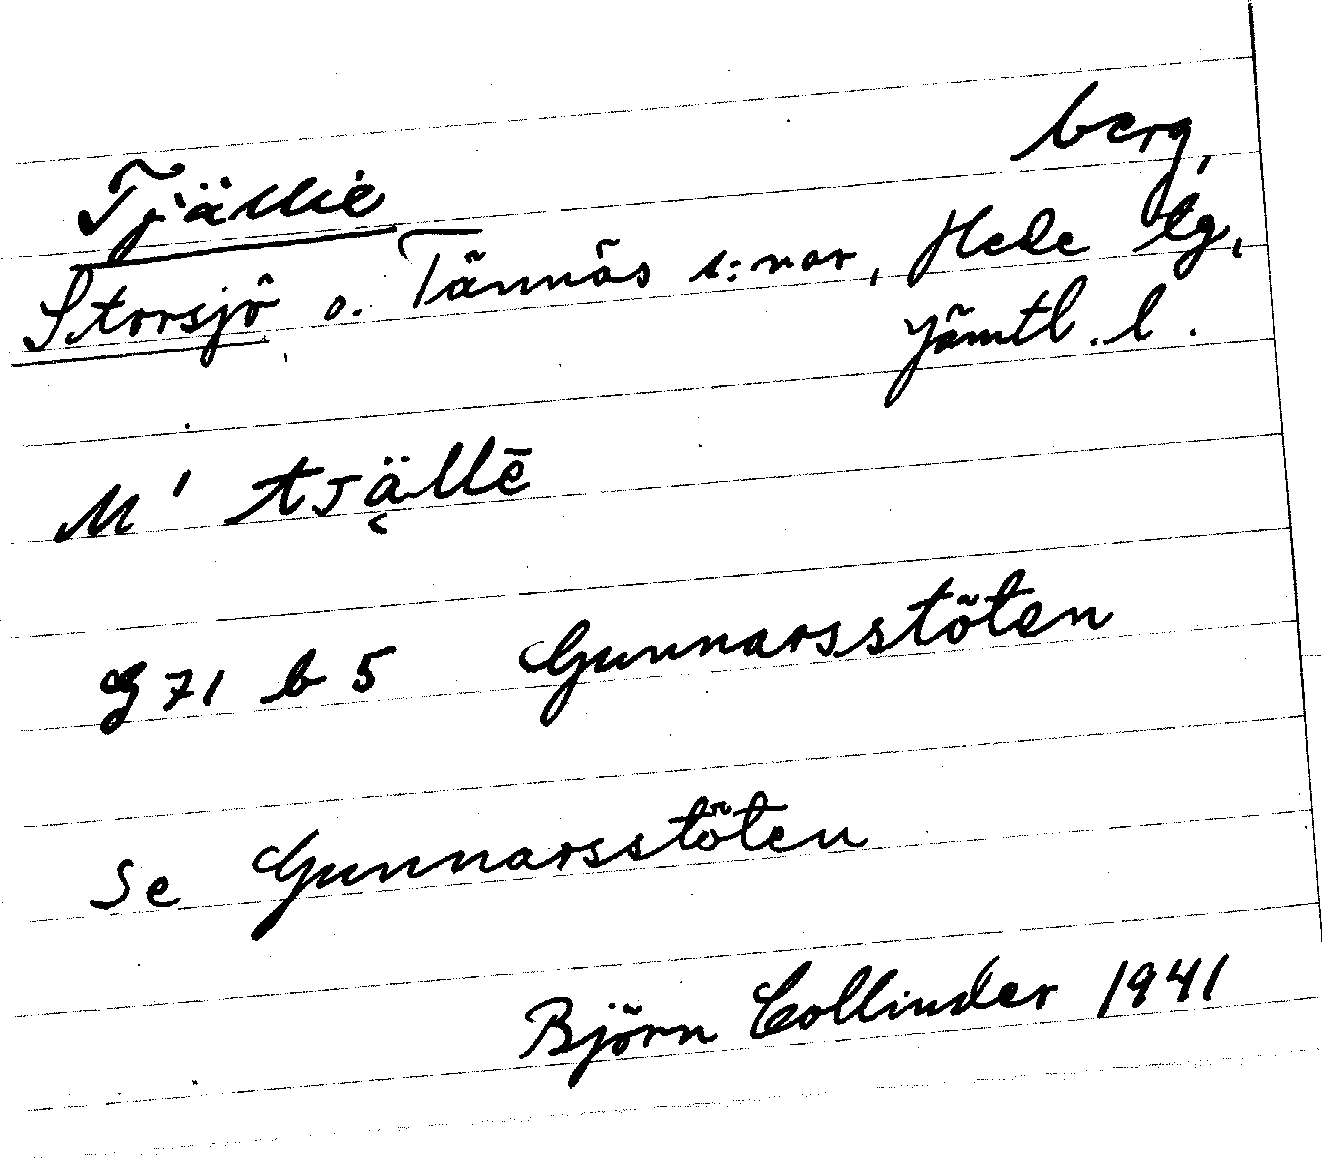 Tjällie berg,
Storsjö o. Tännäs s:nar, Hede tg,
Jämtl. l.
M' tjä̜llē
G 71 b 5 Gunnarsstöten
Se Gunnarsstöten
Björn Collinder 1941